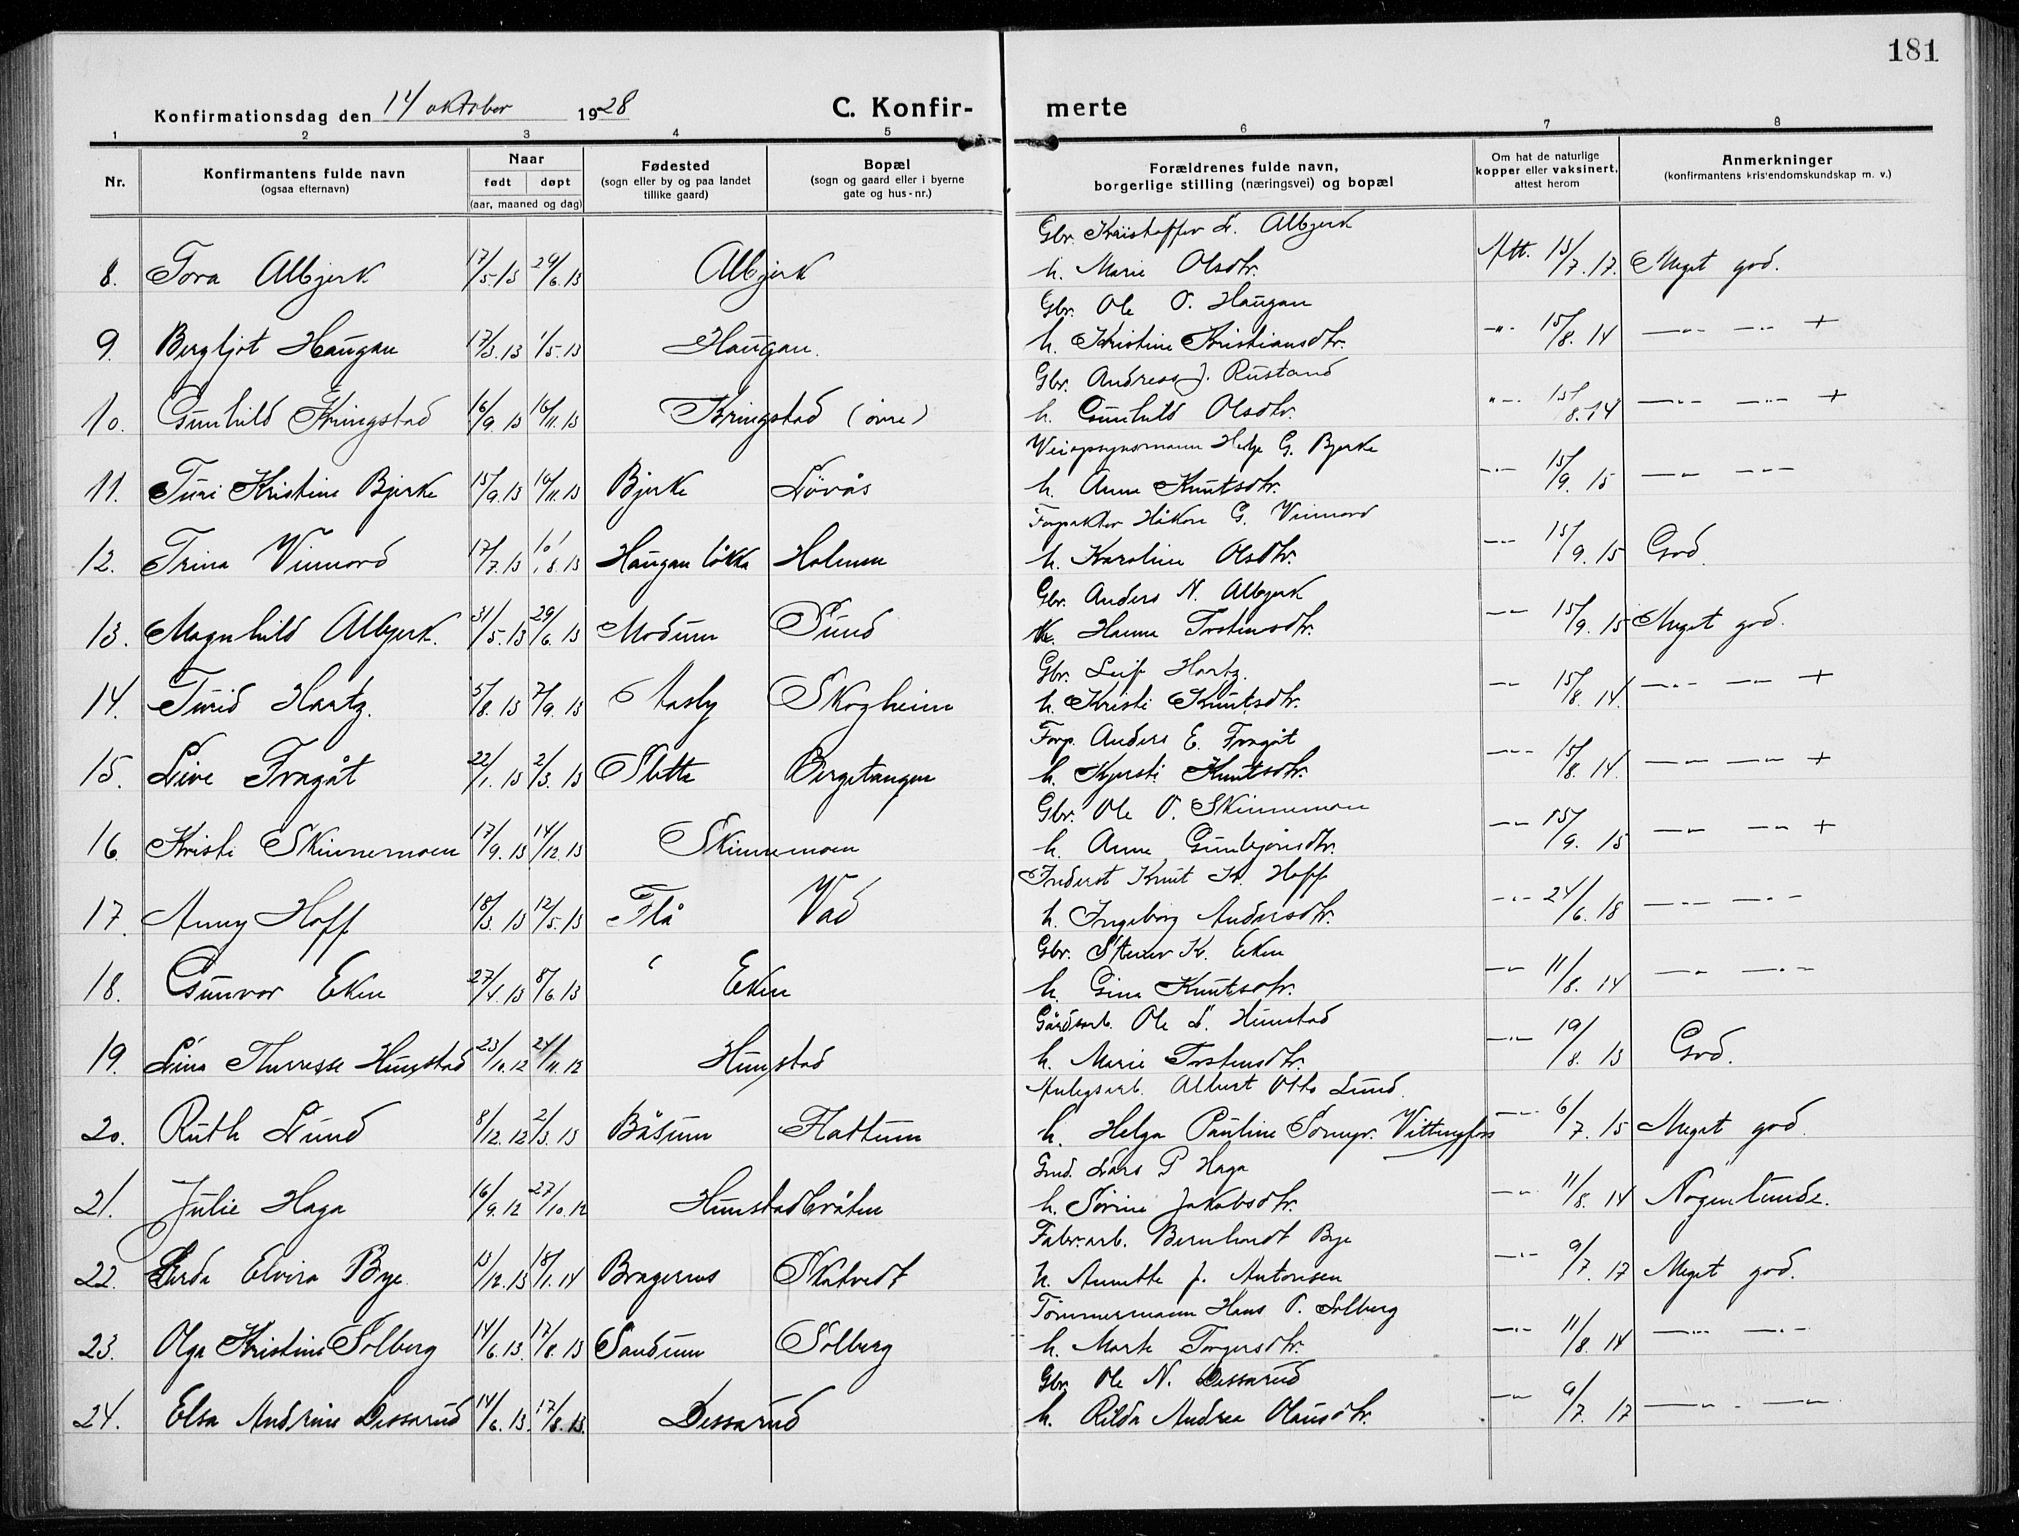 181
Konfirmationsdag den 14 oktober 1928
C. Konfirmerte
1 2 3 4 5 6 7 8
Nr.
Konfirmantens fulde navn (ogsaa efternavn)
Naar født døpt (aar, maaned og dag)
Fødested (sogn eller by og paa landet tillike gaard)
Bopæl (sogn og gaard eller i byerne gate og hus-nr.)
Forældrenes fulde navn, borgerlige stilling (næringsvei) og bopæl
Om hat de naturlige kopper eller vaksinert, attest herom
Anmerkninger (konfirmantens kristendomskundskap m. v.)
Gbr. Kristoffer L. Albjerk
8. Tora Albjerk 17/5.13 29/6.13 Albjerk h. Marie Olsdtr. Att. 15/7.17. Meget god.
Gbr. Ole O. Haugan
9. Bergljot Haugan 17/3.13 1/5.13 Haugan. h. Kristine Kristiansdtr. -"- 15/8.14 -"- -"- +
Gbr. Andreas J. Rustand
10. Gunhild Kringstad 16/9.13 16/11.13 Kringstad (övre) h. Gunhild Olsdtr. -"- 15/8.14 -"- -"- +
Veiopsynsmann Helge G. Bjerke
11. Turi Kristine Bjerke 15/9.13 16/11.13 Bjerke Lövås h. Anne Knutsdtr. -"- 15/9.15 -"- -"-
Forpakter Håkon G. Vimord
12. Trina Vimord 17/7.13 10/8.13 Haugan løkka Holmen h. Karoline Olsdtr. -"- 15/9.15 God.
Gbr. Anders N. Albjerk
13. Magnhild Albjerk. 31/5.13 29/6.13 Modum Sund h. Hanna Torstensdtr. -"- 15/9.15 Meget god.
Gbr. Leif Hartz.
14. Turid Hartz. 5/8.13 7/9.13 Aasby Skogheim h. Kristi Knutsdtr. -"- 15/8.14. -"- -"- +
Forp. Anders E. Fragåt
15. Live Fragåt 22/1.13 2/3.13 Sletta Bergstangen h. Kjersti Knutsdtr. -"- 15/8.14. -"- -"- +
Gbr. Ole O. Skinnemoen
16. Kristi Skinnemoen 17/9.13 14/12.13 Skinnemoen h. Anne Gunbjörnsdtr. -"- 15/9.15 -"- -"- +
Inderst Knut K. Hoff
17. Anny Hoff 18/3.13 12/5.13 Flå Vad h. Ingeborg Andersdtr. -"- 24/6.18 -"- -"-
Gbr. Steiner K. Eken
18. Gunvor Eken 27/4.13 8/6.13 Eken h. Gina Knutsdtr. -"- 11/8.14 -"- -"-
Gårdsarb. Ole L. Hunstad
19. Lina Therese Hunstad 23/10.12 24/11.12 Hunstad h. Marie Torstensdtr. -"- 19/8.13 God.
Anlegsarb. Albert Otto Lund.
20. Ruth Lund 8/12.12 2/3.13 Båsum Flattum h. Helga Pauline Vittingfoss -"- 6/7.15 Meget god.
Lars P Haga
21. Julie Haga 16/9.12 27/10.12 Hunstadbråten h. Sörine Jakobsdtr. -"- 11/8.14 Nogenlunde.
Fabr.arb. Bernhardt Bye
22. Gerda Elvira Bye. 13/12.13 18/1.14 Bragernes Skatvedt h. Annette J. Antonsen -"- 9/7.17 Meget god.
Tömmermann Hans O. Solberg
23. Olga Kristine Solberg 14/6.13. 17/8.13 Sandum Solberg h. Marte Torgersdtr. -"- 11/8.14 -"- -"-
Gbr. Ole N. Dessarud
24. Elsa Andrine Dessarud 14/6.13. 17/8.13. Dessarud h. Rilda Andrea Olausdtr. -"- 9/7.17 -"- -"-